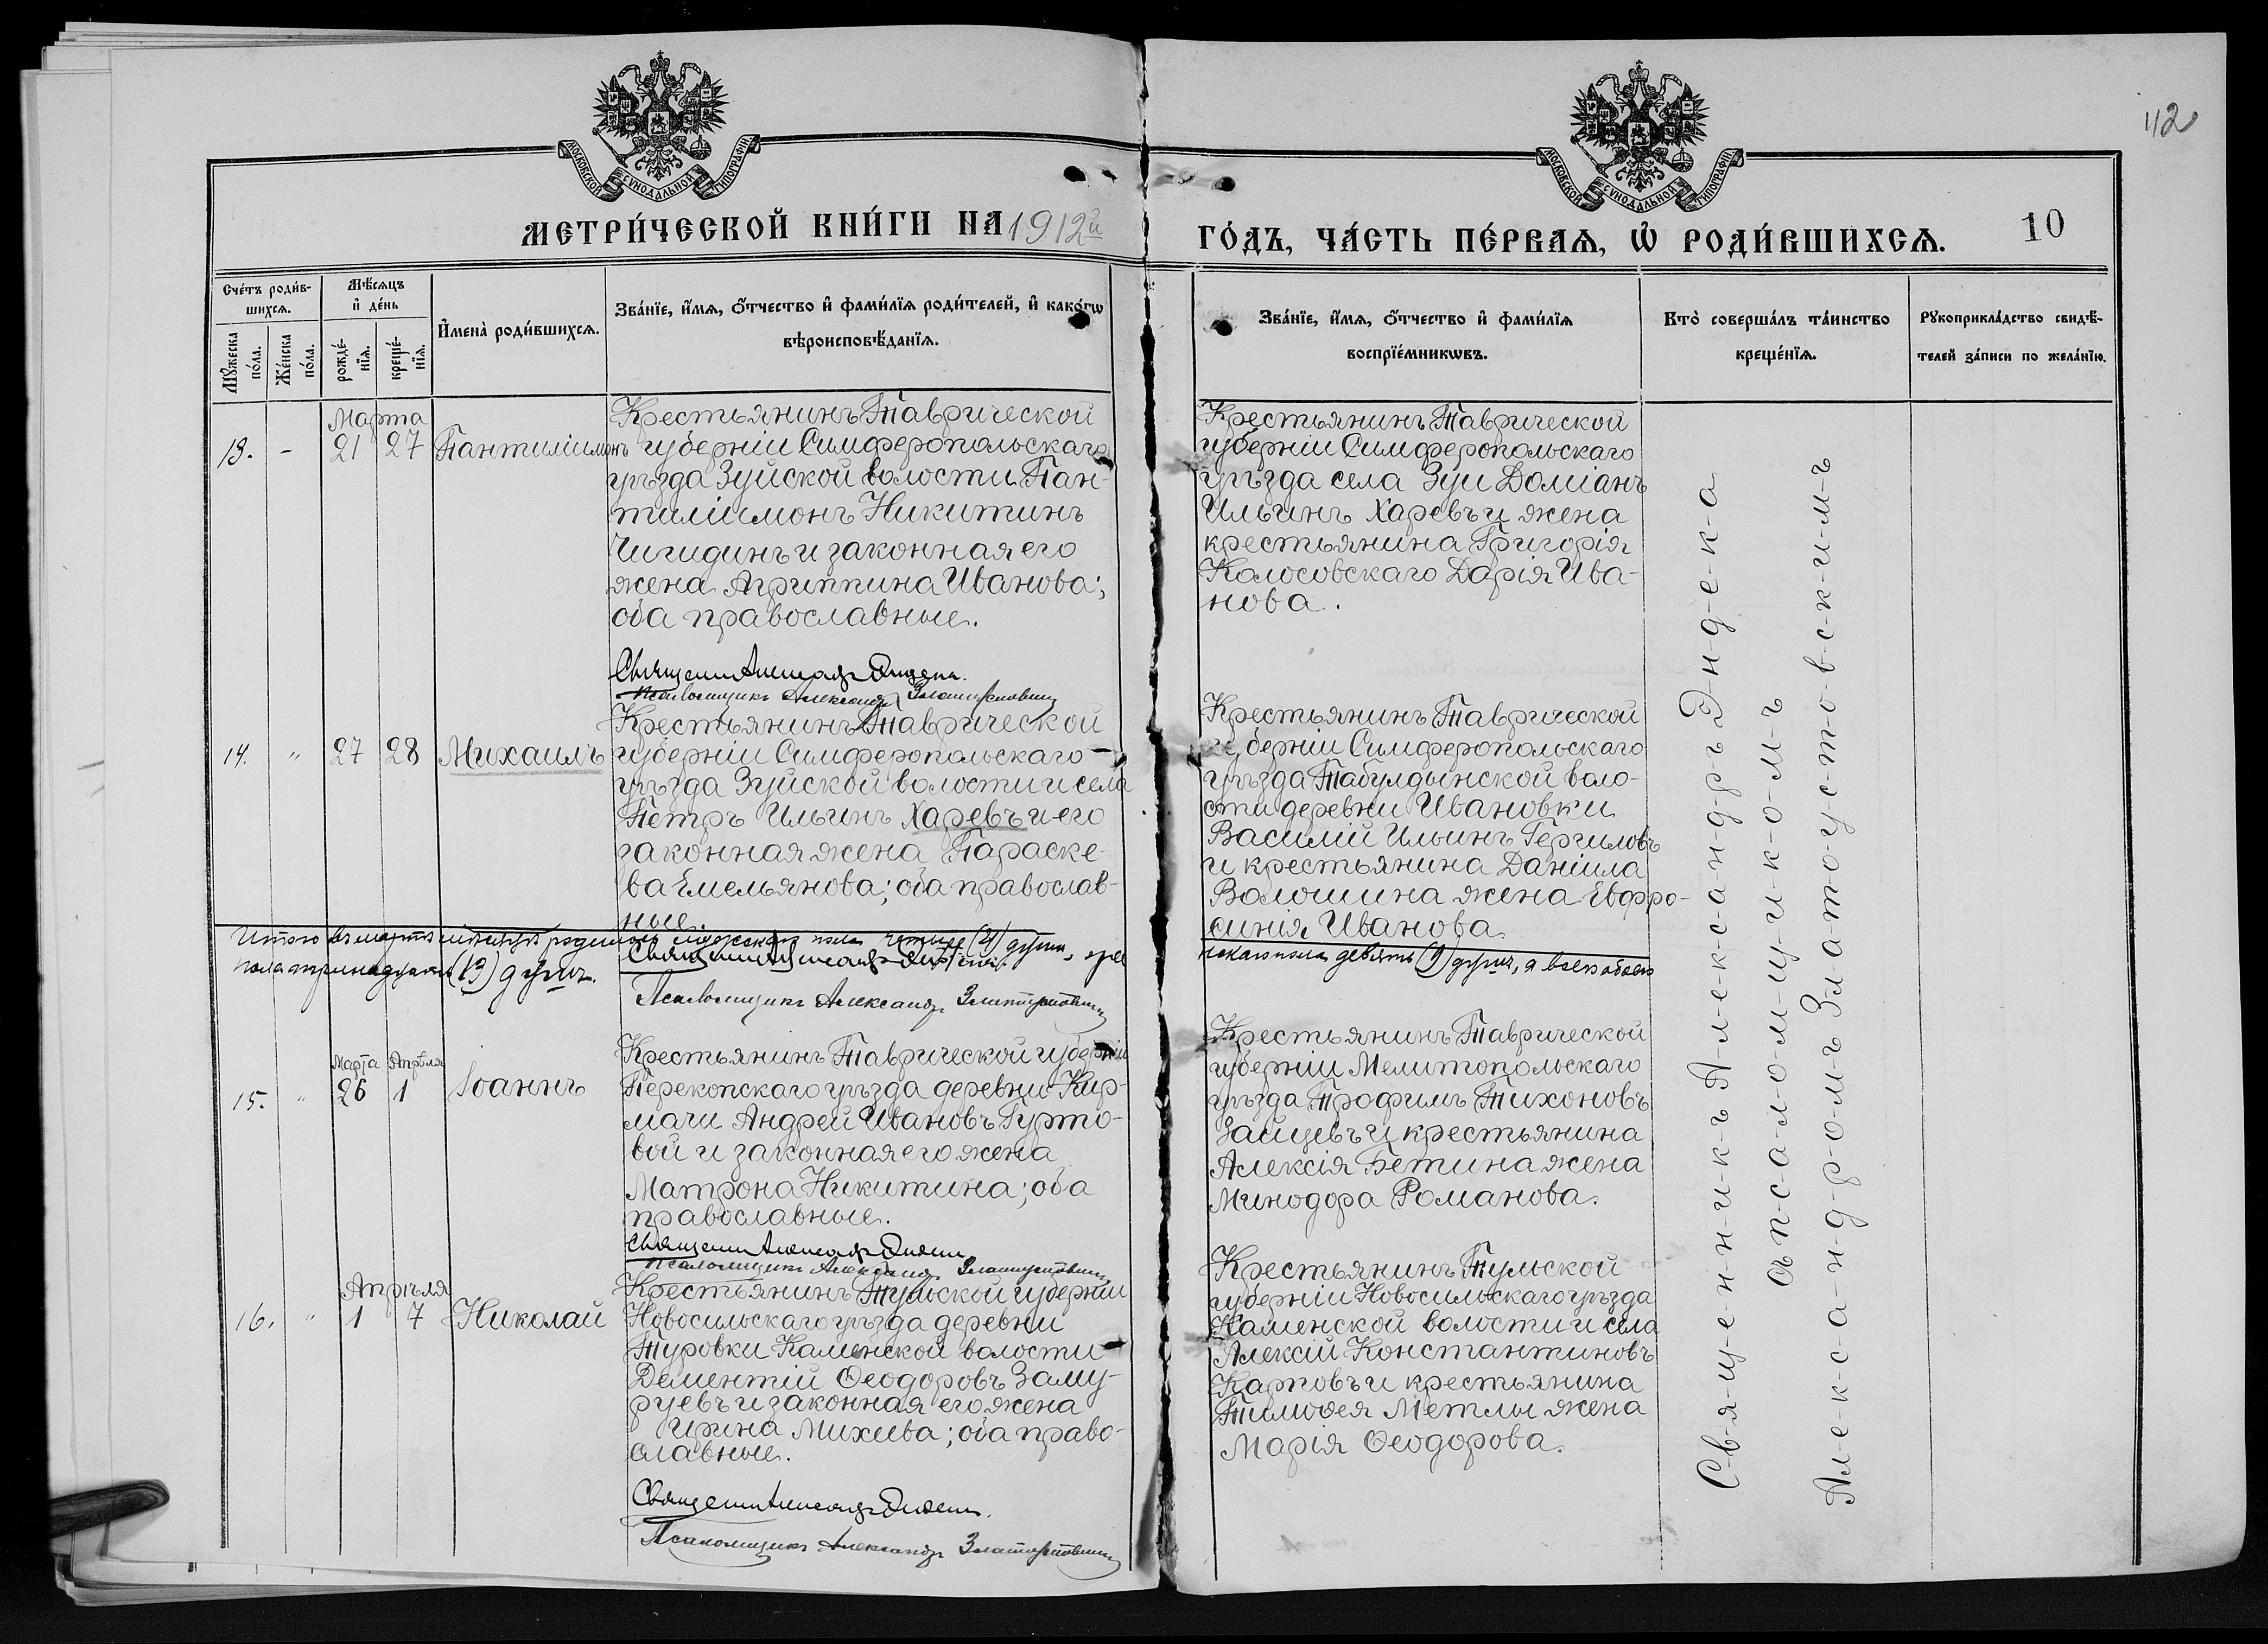 112
МОСКОВСКОЙ СѴНОДАЛЬНОЙ ТИПОГРАФІИ
МОСКОВСКОЙ СѴНОДАЛЬНОЙ ТИПОГРАФІИ
МЕТРИ́ЧЕСКОЙ КНИ́ГИ НА 1912й
ГО́ДЪ, ЧА́СТЬ ПЕ́РВАѦ, Ѽ РОДИ́ВШИХСѦ.
10
Сче́тъ роди́в-
шихсѧ.
Мꙋ́жеска
по́ла.
Же́нска
по́ла.
Мѣ́сѧцъ
и҆ де́нь
рожде́-
нїѧ.
креще́-
нїѧ.
И҆мена̀ роди́вшихсѧ.
Зва́нїе, и҆́мѧ, ѻ҆́тчество и҆ фами́лїѧ роди́телей, и҆ како́гѡ
вѣроисповѣ́данїѧ.
Зва́нїе, и҆́мѧ, ѻ҆́тчество и҆ фами́лїѧ
воспрїе́мникѡвъ.
Кто̀ соверша́лъ та́инство
креще́нїѧ.
Рꙋкоприкла́дство свидѣ́-
телей за́писи по жела́нїю.
Марта
13. - 21 27 Пантилiимонъ
Крестьянинъ Таврической
губернiи Симферопольскаго
уѣзда Зуйской волости Пан-
тилiимонъ Никитинъ
Чигидинъ и законная его
жена Агриппина Иванова;
оба православные.
Священ. Александр Эндека.
Псаломщикъ Александр Златоустовскiй
Крестьянинъ Таврической
губернiи Симферопольскаго
уѣзда села Зуи Домiанъ
Ильинъ Харевъ и жена
крестьянина Григорiя
Колосовскаго Дарiя Ива-
нова.
14. " 27 28 Михаилъ
Крестьянинъ Таврической
губернiи Симферопольскаго
уѣзда Зуйской волости и села
Петръ Ильинъ Харевъ и его
законная жена Параске-
ва Емельянова; оба православ-
ные.
Крестьянинъ Таврической
губернiи Симферопольскаго
уѣзда Табулдынской воло-
сти деревни Ивановки
Василiй Ильинъ Гергиловъ
и крестьянина Данiила
Волошина жена Евфро-
синiя Иванова.
Итого въ мартѣ мѣсяцѣ родилось мужескаго пола четыре (4) души, жен
скаго пола девять (9) душъ, а всего обоего
пола тринадцать (13) душъ.
Священ. Александр Эндека.
Псаломщикъ Александр Златоустовскiй
Марта Апрѣля
15. " 26 1 Iоаннъ
Крестьянинъ Таврической губернiи
Перекопскаго уѣзда деревни Кир-
мачи Андрей Ивановъ Гурто-
вой и законная его жена
Матрона Никитина; оба
православные.
Священ. Александр Эндека
Псаломщикъ Александр Златоустовскiй
Крестьянинъ Таврической
губернiи Мелитопольскаго
уѣзда Трофимъ Тихоновъ
Зайцевъ и крестьянина
Алексiя Бетина жена
Минодора Романова.
Апрѣля
16. " 1 7 Николай
Крестьянинъ Тульской губернiи
Новосильскаго уѣзда деревни
Туровки Каменской волости
Дементiй Ѳеодоровъ Заму-
руевъ и законная его жена
Ирина Михеева; оба право-
славные.
Священ. Александр Эндека.
Псаломщикъ Александр Златоустовскiй
Крестьянинъ Тульской
губернiи Новосильскаго уѣзда
Каменской волости и села
Алексiй Константиновъ
Карповъ и крестьянина
Тимоѳея Метлы жена
Марiя Ѳеодорова.
С-в-я-щ-е-н-н-и-к-ъ А-л-е-к-с-а-н-д-р-ъ Э-н-д-е-к-а
съ п-с-а-л-о-м-щ-и-к-о-м-ъ
А-л-е-к-с-а-н-д-р-о-м-ъ З-л-а-т-о-у-с-т-о-в-с-к-и-м-ъ